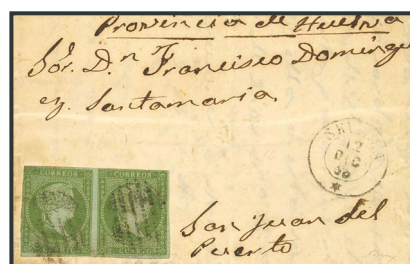 Provincia de Huelva
Sor. D.n Francisco Domingu
ez. Santamaria
CORREOS CORREOS
San Juan del
Puerto